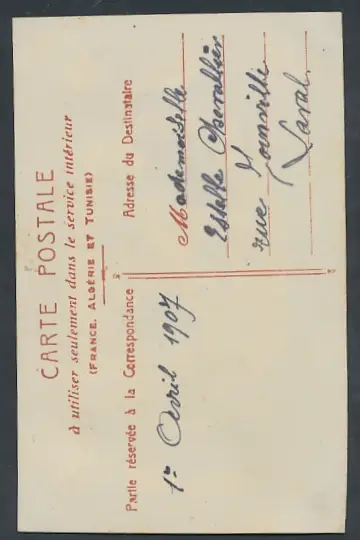 CARTE POSTALE
à utiliser seulement dans le service intérieur
(FRANCE, ALGÉRIE ET TUNISIE)
Partie réservée à la Correspondance
Adresse du Destinataire
1er Avril 1907
Mademoiselle
Estelle Chevallier
rue Joinville
Laval